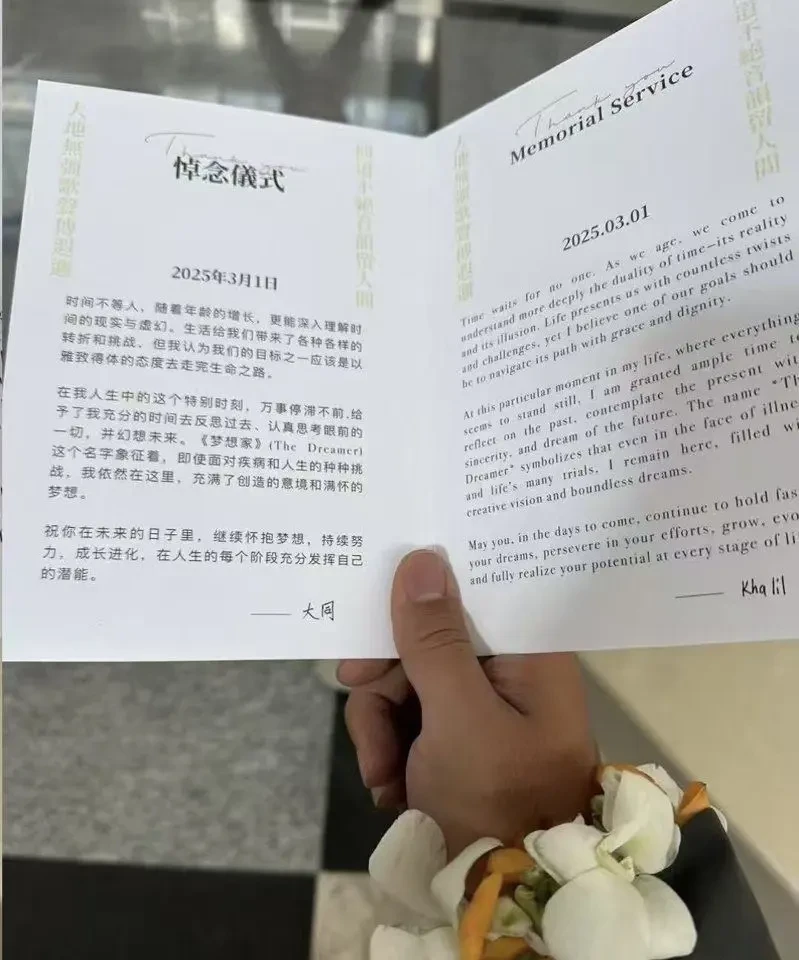 Thank you
悼念儀式
2025年3月1日
时间不等人，随着年龄的增长，更能深入理解时
间的现实与虚幻。生活给我们带来了各种各样的
转折和挑战、但我认为我们的目标之一应该是以
雅致得体的态度去走完生命之路。
在我人生中的这个特别时刻，万事停滞不前,给
予了我充分的时间去反思过去、认真思考眼前的
一切，并幻想未来。《梦想家》(The Dreamer)
这个名字象征着，即使面对疾病和人生的种种挑
战，我依然在这里，充满了创造的意境和满怀的
梦想。
祝你在未来的日子里，继续怀抱梦想，持续努
力，成长进化，在人生的每个阶段充分发挥自己
的潜能。
—— 大同
Thank you
Memorial Service
2025.03.01
Time waits for no one. As we age, we come to
understand more deeply the duality of time—its reality
and its illusion. Life presents us with countless twists
and challenges, yet I believe one of our goals should
be to navigate its path with grace and dignity.
At this particular moment in my life, where everything
seems to stand still, I am granted ample time to
reflect on the past, contemplate the present wit
sincerity, and dream of the future. The name "Th
Dreamer" symbolizes that even in the face of illne
and life's many trials, I remain here, filled wi
creative vision and boundless dreams.
May you, in the days to come, continue to hold fas
your dreams, persevere in your efforts, grow, evo
and fully realize your potential at every stage of li
—— Khalil